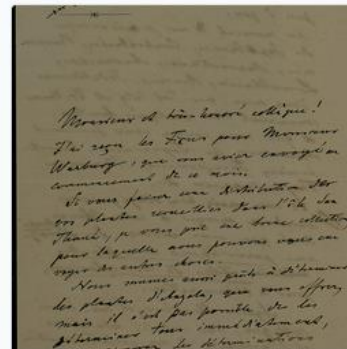 Monsieur et très honoré collègue!
J'ai reçu les Ficus pour Monsieur
Warburg, que vous aviez envoyé au
commencement de ce mois.
Si vous faites une distribution des
vos plantes recueillies dans l'île San
Thomé, je vous prie une bonne collection
pour laquelle nous pouvons vous en-
voyer des autres choses.
Nous sommes aussi prêts à déterminer
des plantes d'Angola, que vous offrez,
mais il n'est pas possible de les
déterminer tous immédiatement,
les déterminations